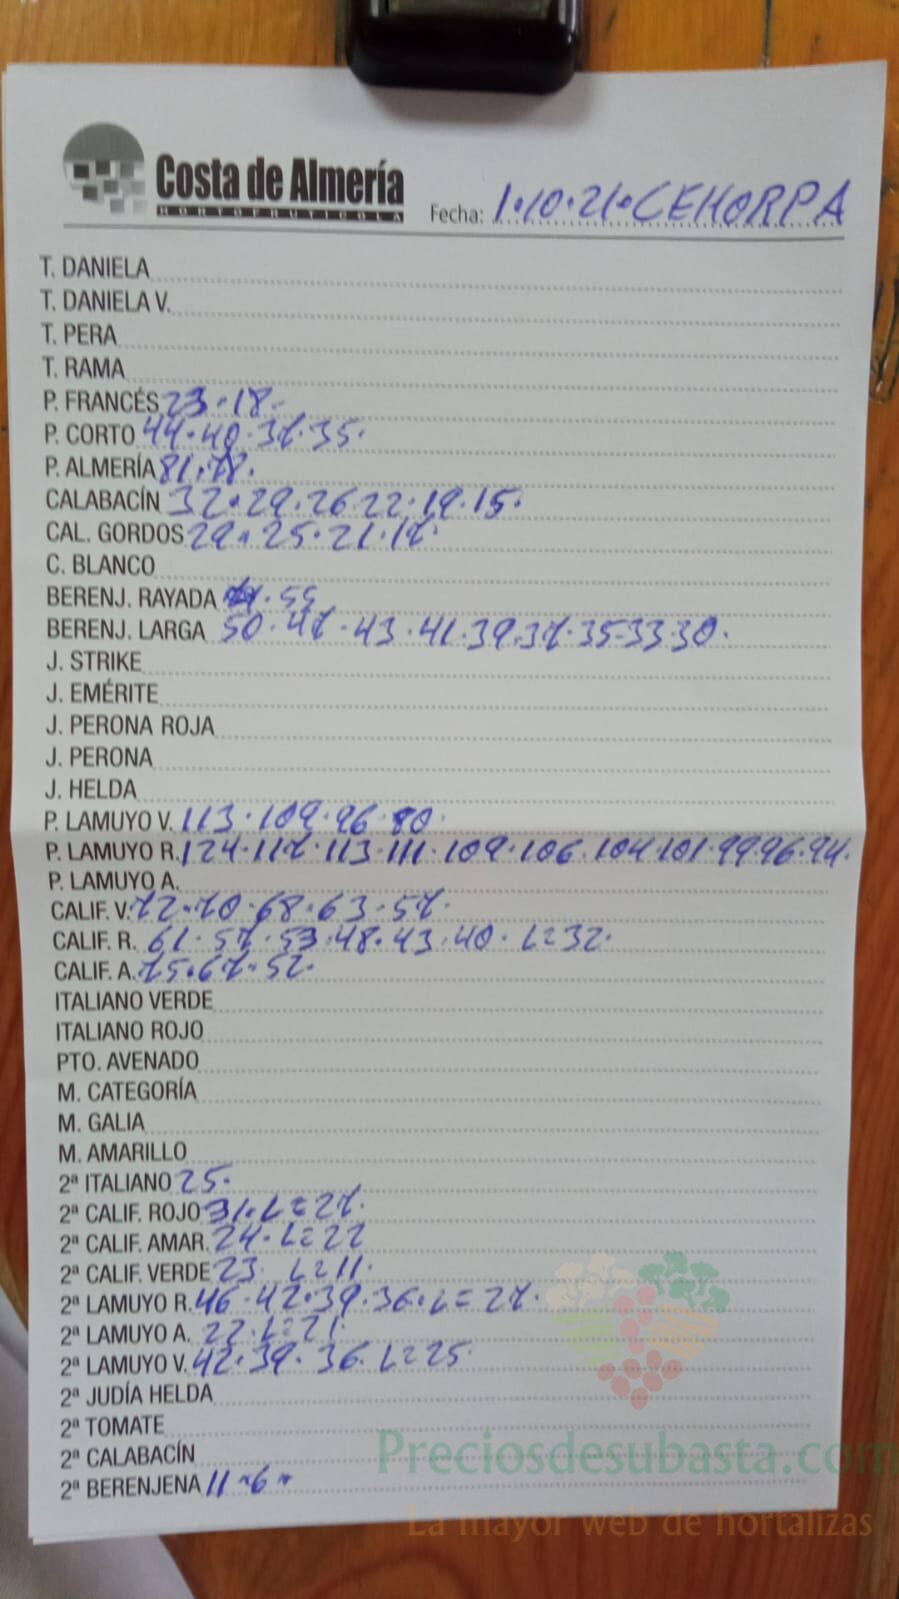 Costa de Almería
HORTOFRUTICOLA
Fecha: 1.10.21.CEHORPA
T. DANIELA
T. DANIELA V.
T. PERA
T. RAMA
P. FRANCÉS 23.18.
P. CORTO 44.40.37.35.
P. ALMERÍA 81.78.
CALABACÍN 32.29.26 22.19.15.
CAL. GORDOS 29.25.21.17.
C. BLANCO
BERENJ. RAYADA .55
BERENJ. LARGA 50.47.43.41.39.37.35.33.30.
J. STRIKE
J. EMÉRITE
J. PERONA ROJA
J. PERONA
J. HELDA
P. LAMUYO V. 113.109.96.80.
P. LAMUYO R. 124.117.113.111.109.106.104.101.99.96.94.
P. LAMUYO A.
CALIF. V. 72.70.68.63.57.
CALIF. R. 61.57.53.48.43.40. L=32.
CALIF. A. 75.67.52.
ITALIANO VERDE
ITALIANO ROJO
PTO. AVENADO
M. CATEGORÍA
M. GALIA
M. AMARILLO
2ª ITALIANO 25.
2ª CALIF. ROJO 31.L=27.
2ª CALIF. AMAR. 24.L=22
2ª CALIF. VERDE 23. L=11.
2ª LAMUYO R. 46.42.39.36.L=27.
2ª LAMUYO A. 22.L=21.
2ª LAMUYO V. 42.39.36.L=25.
2ª JUDÍA HELDA
2ª TOMATE
2ª CALABACÍN
2ª BERENJENA 11-6-
Preciosdesubasta.com
La mayor web de hortalizas